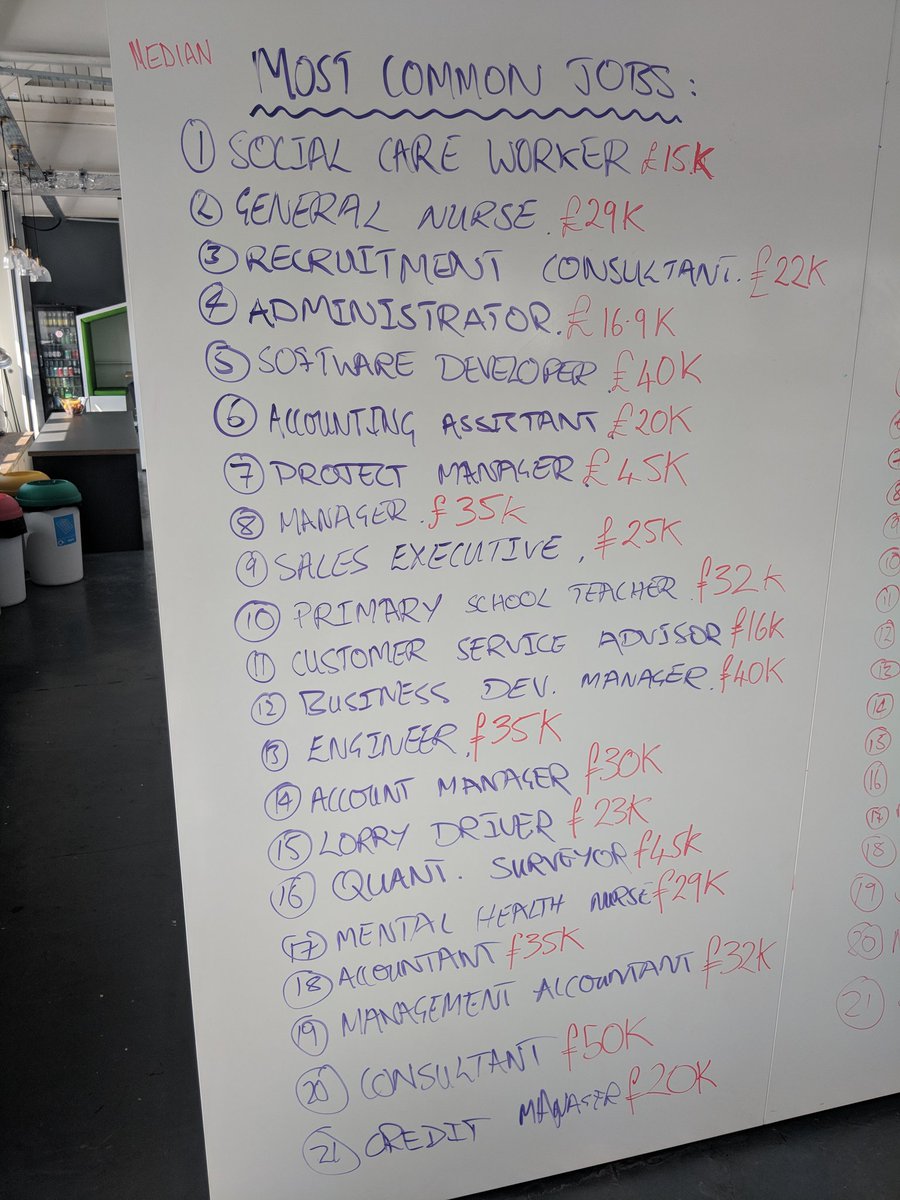 MEDIAN
MOST COMMON JOBS:
1 SOCIAL CARE WORKER £15K
2 GENERAL NURSE. £29K
3 RECRUITMENT CONSULTANT. £22K
4 ADMINISTRATOR. £16.9K
5 SOFTWARE DEVELOPER £40K
6 ACCOUNTING ASSISTANT £20K
7 PROJECT MANAGER £45K
8 MANAGER. £35K
9 SALES EXECUTIVE, £25K
10 PRIMARY SCHOOL TEACHER. £32K
11 CUSTOMER SERVICE ADVISOR £16K
12 BUSINESS DEV. MANAGER. £40K
13 ENGINEER. £35K
14 ACCOUNT MANAGER £30K
15 LORRY DRIVER £23K
16 QUANT. SURVEYOR £45K
17 MENTAL HEALTH NURSE £29K
18 ACCOUNTANT £35K
19 MANAGEMENT ACCOUNTANT £32K
20 CONSULTANT £50K
21 CREDIT MANAGER £20K
7
8
10
11
12
13
14
15
16
17
18
19
20
21